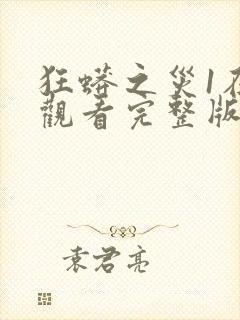 狂蟒之災1在
觀看完整版
袁君亮